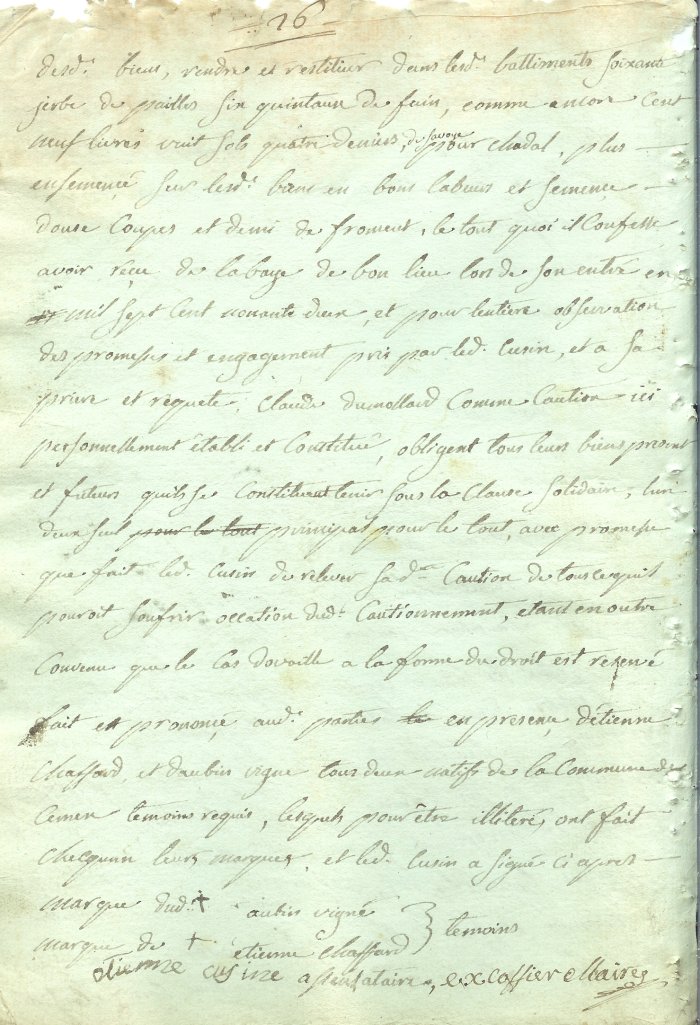 16
desd.ts biens, rendre et restituer dans lesd.ts battiments soixante
jerbe de pailles six quintaux de fuin, comme encore Cent
neuf livres vuit sols quatre deniers, de savoye pour chadal, plus
ensemencé sur lesd.ts biens en bons labeurs et semence
douse Coupes et demi de froment, le tout quoi il Confesse
avoir reçue de labaye de bon lieu lors de son entré en
mil sept Cent nonante deux, et pour lentiere observation
des promesses et engagement pris par led. Cusin, et a sa
priere et requete, Claude dumollard Comme Caution ici
personnellement établi et Constitué, obligent tous leurs biens present
et futurs quils se Constituent tenir sous la Clause Solidaire, lun
deux seul pour le tout principal pour le tout, avec promesse
que fait led. Cusin de relever sad.te Caution de tous ce quil
pouroit soufrir occation dud.t Cautionnement, etant en outre
Convenu que le Cas dovaille a la forme du droit est reservé
fait et prononcé aud.ts parties le en presence d'étienne
Chaffard, et daubin vigne tous deux natifs de la Commune de
temoins requis, lesquels pour être illiteré, ont fait
checqunn leurs marques, et led. Cusin a signé ci apres
marque dud.t + aubin vigné
marque de + etienne Chaffard } temoins
etienne cusine, excoffier Maire